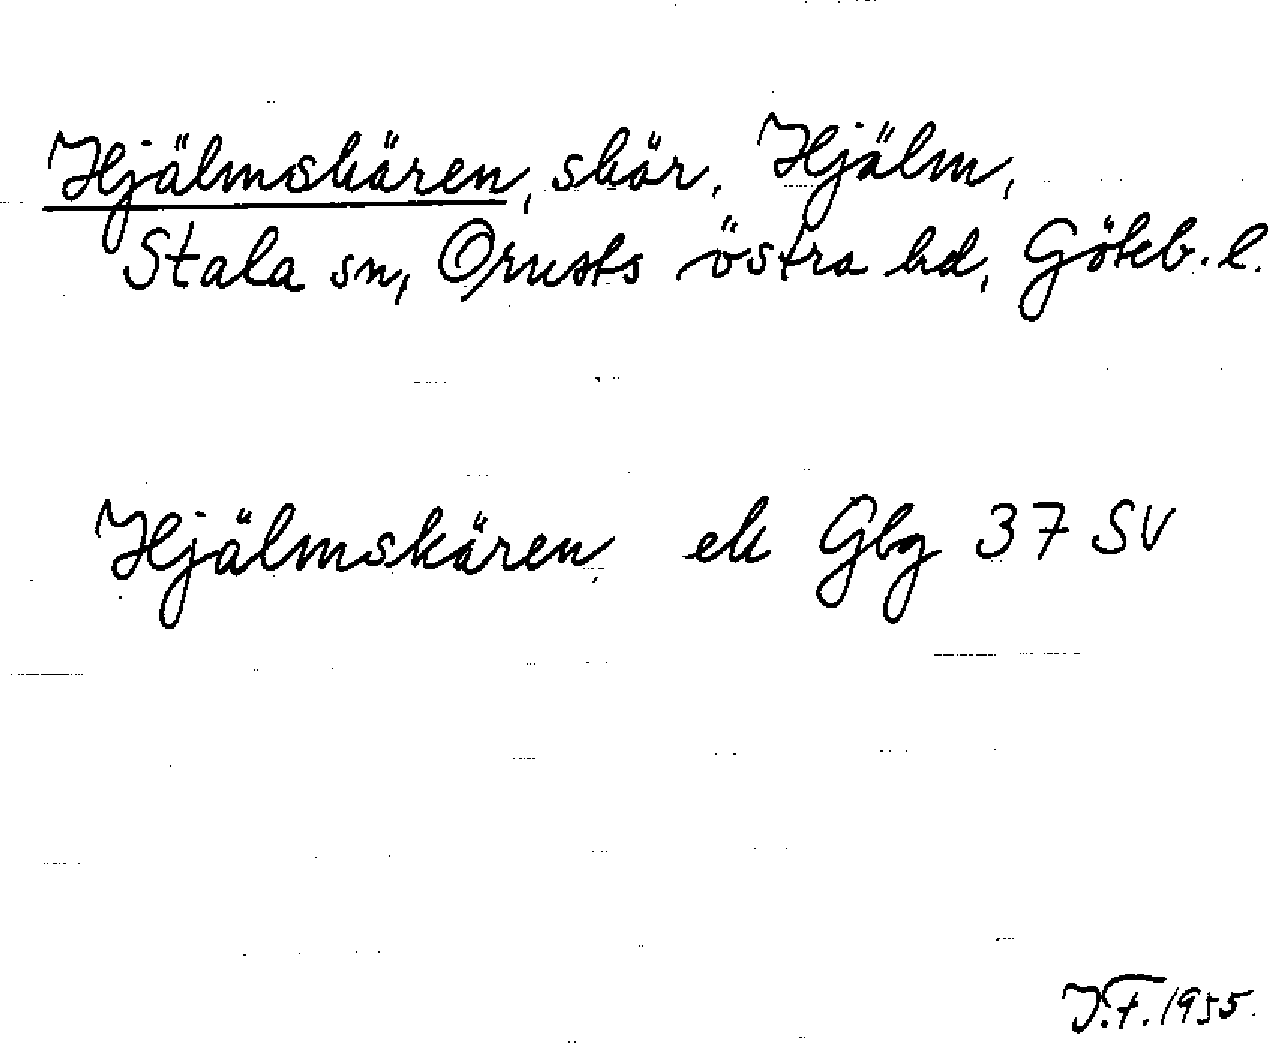 Hjälmskären, skär, Hjälm,
Stala sn, Orusts östra hd, Göteb. l.
Hjälmskären ek Gbg 37 SV
J.F. 1955.